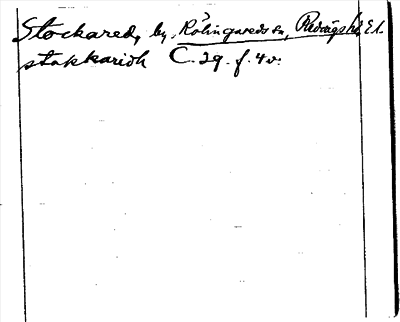 Stockared, by, Rölingaredssn, Redvägs hd, Äl.
stakkaridh C. 29. f. 4 v.